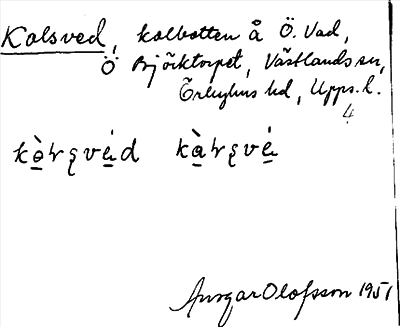 Kolsved, kolbotten å Ö. Vad,
Ö Björktorpet, Västlands sn,
Örbyhus hd, Upps. l.
4
Ansgar Olofsson 1951